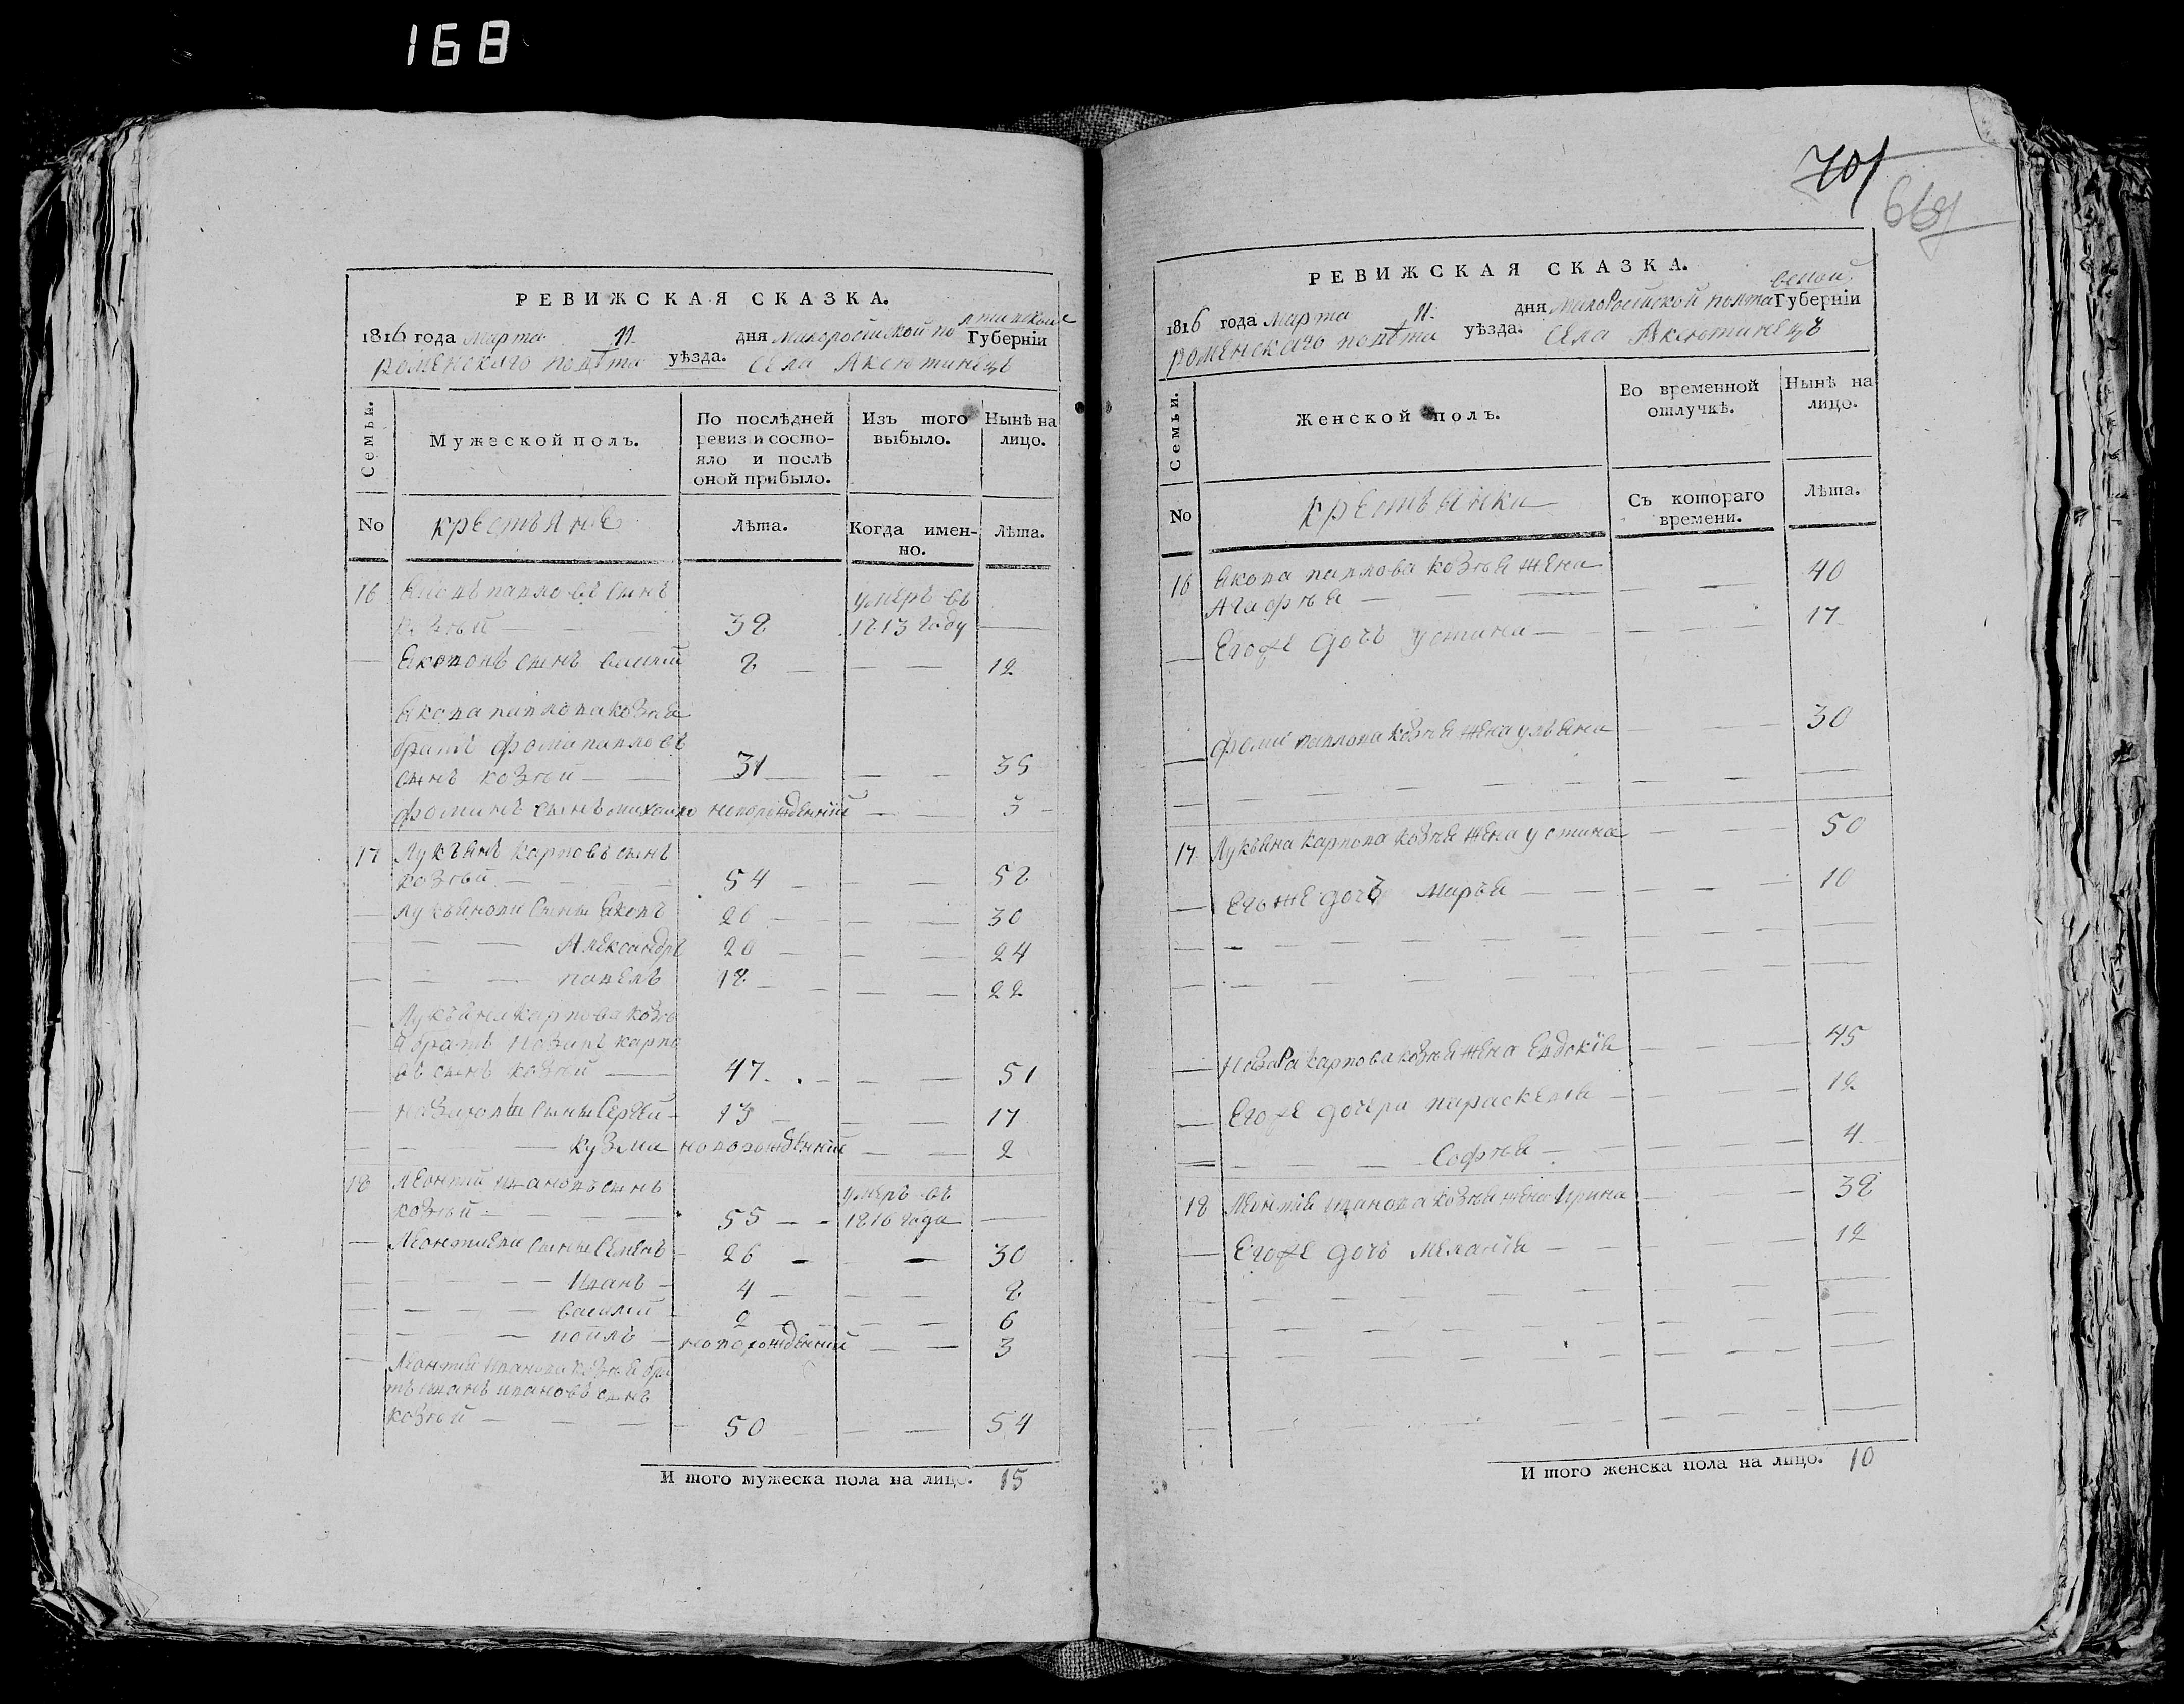 168
РЕВИЖСКАЯ СКАЗКА.
1816 года Марта 11. дня Малоросійской пол
тавской Губерніи
роменского повѣта уѣзда. села Аксютинецъ
Семьи.
Мужеской полъ.
По послѣдней
ревизіи состо-
яло и послѣ
оной прибыло.
Изъ того
выбыло.
Нынѣ на
лицо.
No
крестьяне
лѣта.
Когда имен-
но.
лѣта.
16 Яковъ павловъ сынъ умеръ въ
козлий 38 1813 году
Яковонъ сынъ василий 8 12
Якова павлова козлия
братъ фома павловъ
сынъ козлий 31 35
фоминъ сынъ михаило новорожденний 3
17 Лукъянъ карповъ сынъ
козлий 54 58
Лукъянови сыны Яковъ 26 30
Александръ 20 24
павелъ 18 22
Лукъяна карпова козл
я братъ Назаръ карпо
въ сынъ козлий 47. 51
назарови сыны Сергѣй 13 17
кузма новорожденний 2
18 Леонтий ивановъ сынъ умеръ въ
козлий 55 1816 года
Леонтиеви сыны Семенъ 26 30
Иванъ 4 8
василий 2 6
новорожденний 3
Леонтия иванова козлия бра
тъ иванъ ивановъ сынъ
козлий 50 54
И того мужеска пола на лицо. 15
701
669
РЕВИЖСКАЯ СКАЗКА.
1816 года Марта 11. дня Малоросійской полта
вской Губерніи
роменскаго повѣта уѣзда. села Аксютинецъ
Семьи.
Женской полъ.
Во временной
отлучкѣ.
Нынѣ на
лицо.
No
крестьянки
Съ котораго
времени.
Лѣта.
16 Якова павлова козлия жена 40
Агафия
Егоже дочь устина 17
фоми павлова козлия жена ульяна 30
17 Лукьяна карпова козлия жена устина 50
Егоже дочъ Маръя 10
Назара карпова козлия жена Евдокія 45
Егоже дочери параскевия 12
Софія 4
18 Леонтія иванова козлия жена Ирина 38
Егоже дочъ Меланія 12
И того женска пола на лицо. 10